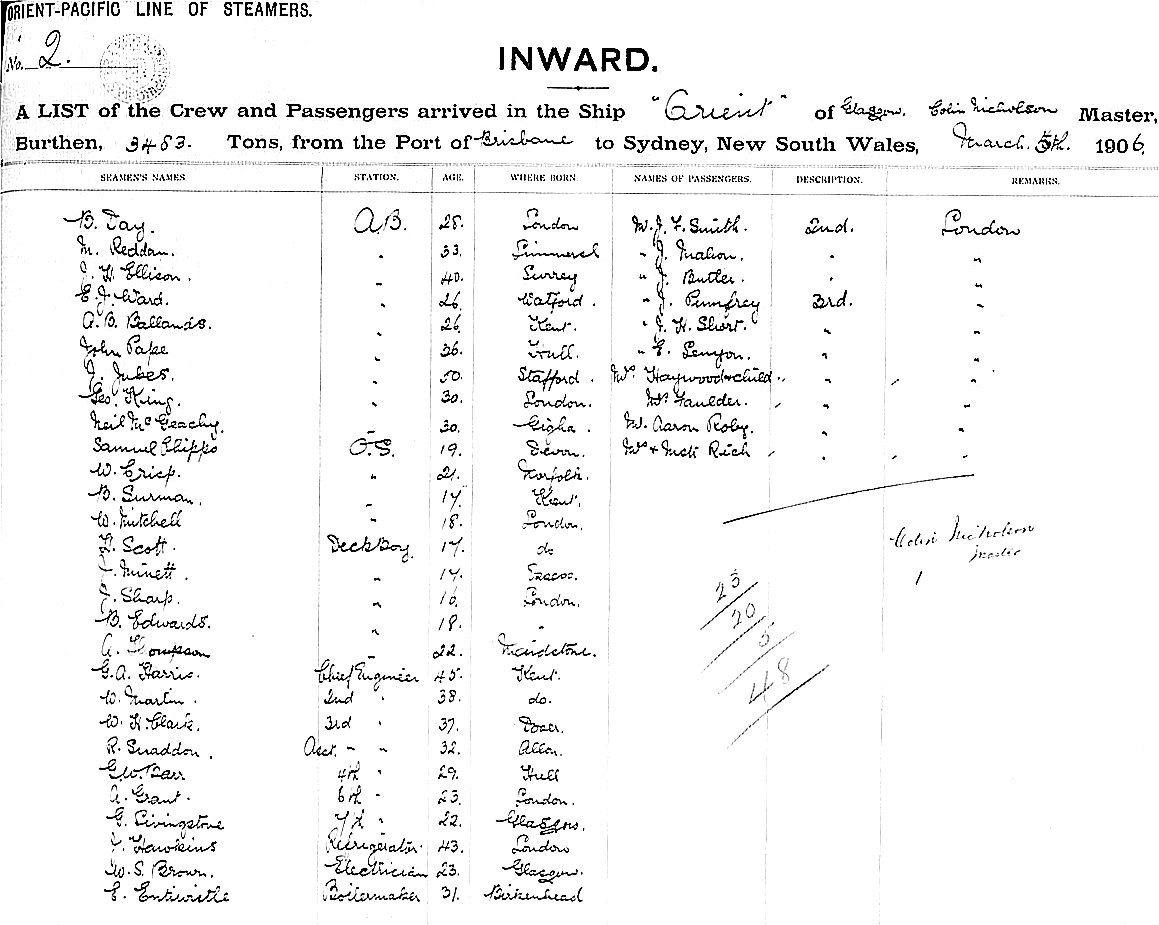 ORIENT-PACIFIC LINE OF STEAMERS.
No. 2.
INWARD.
A LIST of the Crew and Passengers arrived in the Ship "Orient" of Glasgow, Colin Nicholson Master,
Burthen, 3483. Tons, from the Port of Brisbane to Sydney, New South Wales, March. 5th. 1906,
SEAMEN'S NAMES STATION. AGE. WHERE BORN. NAMES OF PASSENGERS. DESCRIPTION. REMARKS.
B. Day. A.B. 28. London Mr J. F. Smith. 2nd. London
M. Reddan. " 33. " J. Mahon. " "
J. H. Ellison. " 40. Surrey " J. Butler. " "
E. J. Ward. " 26 Watford. " J. Pumfrey 3rd. "
A. B. Ballands. " 26 Kent. " J. H. Short. " "
John Pape " 36. Hull. " E. Lenyon. " "
J. Jubes. " 50. Stafford. Mrs Haywood + child " "
Geo. King. " 30. London. Mrs Faulder. " "
Neil McGeachy. " 30. Gigha. Mr. Aaron Roby. " "
Samuel Phipps O.S. 19. Devon. Mrs + Mstr Rich " "
W. Crisp. " 21. Norfolk.
B. Surman. " 17. Kent.
W. Mitchell " 18. London.
H. Scott. Deck Boy 17. do
J. Minett. " 17.
J. Sharp. " 16. London.
B. Edwards. " 18. "
A. Thompson 22. Maidstone.
G. A. Harris. Chief Engineer 45. Kent.
W. Martin. 2nd " 38. do.
W. H. Clark. 3rd " 37.
R. Snaddon. Asst. " " 32. Alloa.
G. W. Barr 4th " 29. Hull
A. Grant. 6th " 23. London.
G. Livingstone 7th " 22. Glasgow.
J. Hawkins Refrigerator 43. London
W. S. Brown. Electrician 23. Glasgow.
E. Entwistle Boilermaker 31. Birkenhead
Colin Nicholson
Master
23
20
5
48